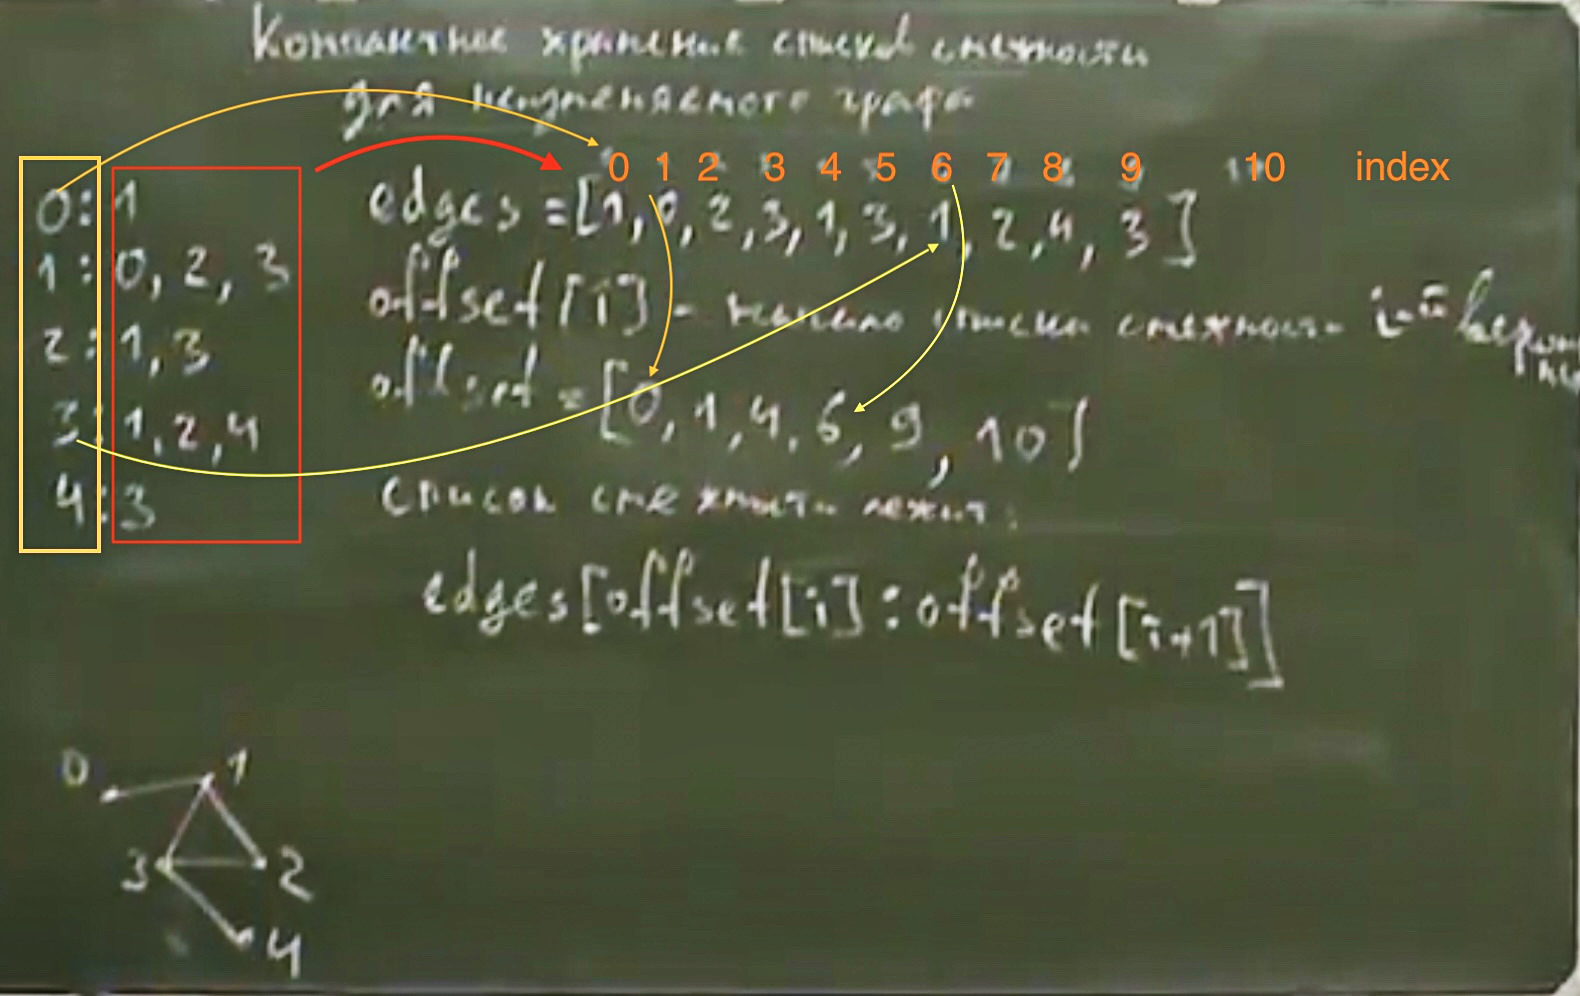 Компактное хранение списков смежности
для неизменяемого графа
0 1 2 3 4 5 6 7 8 9 10 index
edges = [1, 0, 2, 3, 1, 3, 1, 2, 4, 3]
offset[i] - начало списка смежности i-ой вершины
offset = [0, 1, 4, 6, 9, 10]
список смежности лежит:
edges[offset[i] : offset[i+1]]
0: 1
1: 0, 2, 3
2: 1, 3
3: 1, 2, 4
4: 3
0
1
3
2
4